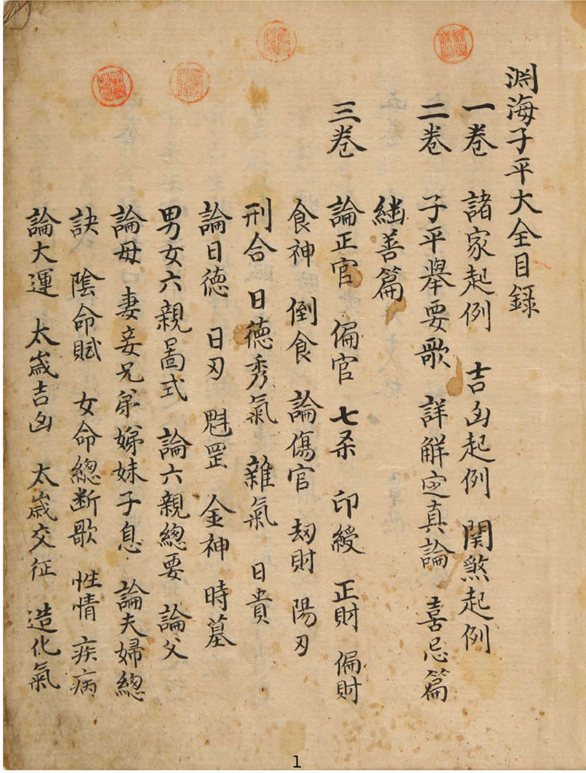 渊海子平大全目録
一巻 諸家起例 吉凶起例 関煞起例
二巻 子平舉要歌 詳解定真論 喜忌篇
継善篇
三巻 論正官 偏官 七杀 印綬 正財 偏財
食神 倒食 論傷官 刼財 陽刃
刑合 日徳秀氣 雜氣 日貴
論日徳 日刃 魁罡 金神 時墓
男女六親啚式 論六親總要 論父
論母 妻妾兄弟娣妹子息 論夫婦總
訣 陰命賦 女命總断歌 性情 疾病
論大運 太歲吉凶 太歲交征 造化氣
1